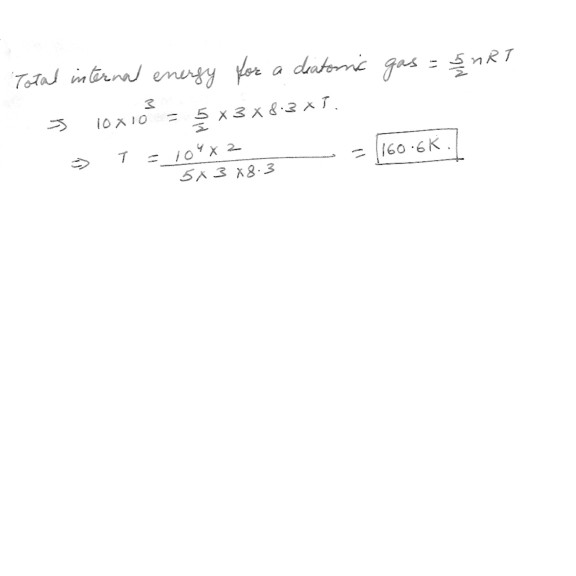 Total internal energy for a diatomic gas = 5/2 nRT
⇒ 10×10³ = 5/2 × 3 × 8.3 × T.
⇒ T = 10⁴ × 2 / 5 × 3 × 8.3 = 160.6K.